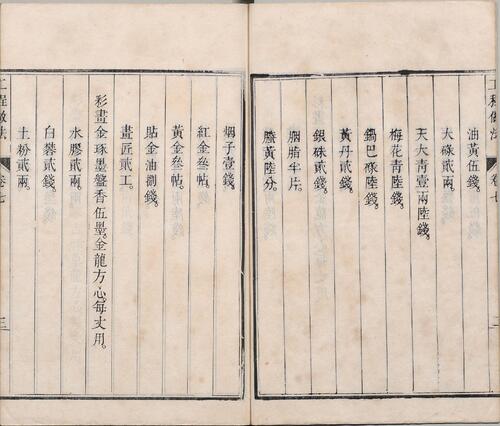 工程做法 卷七 二
油黃伍錢。
大碌貳兩。
天大青壹兩陸錢。
梅花青陸錢。
鍋巴碌陸錢。
黃丹貳錢。
銀硃貳錢。
胭脂半片。
籐黃陸分。
烟子壹錢。
紅金叄帖。
黃金叄帖。
貼金油捌錢。
畫匠貳工。
彩畫金琢墨聾香伍墨。金龍方心。每丈用。
水膠貳兩。
白礬貳錢。
土粉貳兩。
工程做法 卷七 三